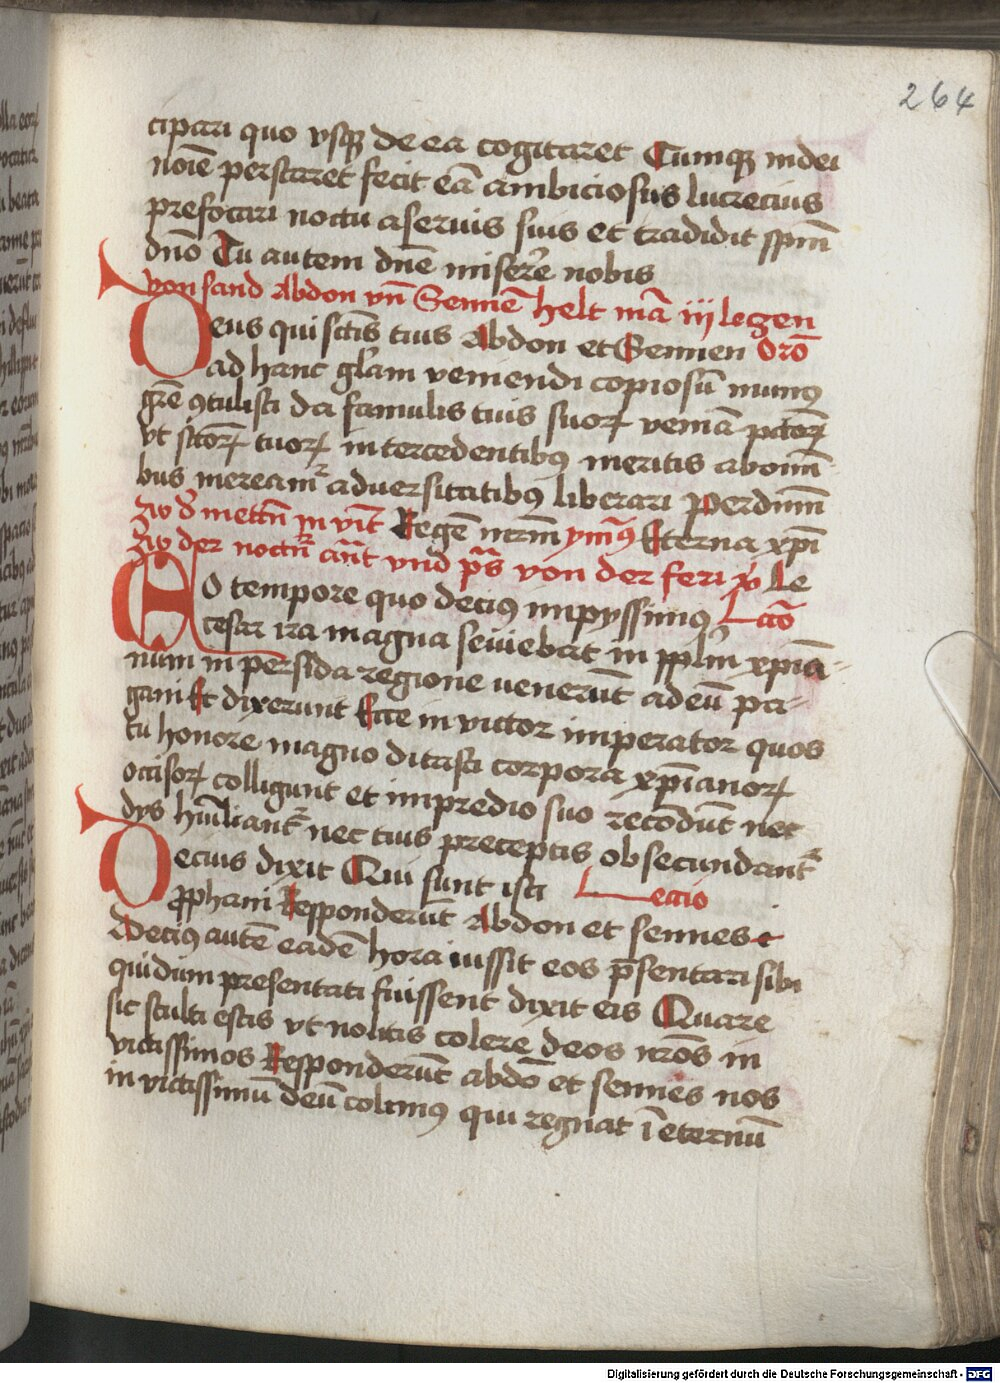 264
cipari quo vsq; de ea cogitaret Cumq; in dei
noīe perstaret fecit eā ambiciosus lucrecius
prefocari noctu a seruis suis et tradidit sp̄m
dn̄o Tu autem dn̄e miserē nobis
von sand Abdon vn̄ Sennē helt mā iij legen
Deus qui sctīs tuis Abdon et Sennen Orō
ad hanc gl̄am veniendi copiosū munꝰ
gr̄e ꝯtulisti da famulis tuis suoꝝ veniā pctōꝝ
vt sctōꝝ tuoꝝ intercedentibꝰ meritis ab om̄i
bus mereamr̄ aduersitatibꝰ liberari Per dn̄m
Zw d̄ mettn̄ in vit̄ Regē nr̄m ymꝰ Eterna xp̄i
Zw der noctn̄ ant̄ vnd ps̄ von der feri Le
EO tempore quo deciꝰ impyssimꝰ Lcciō
cesar ira magna seuiebat in pplm̄ xp̄ia-
num in persida regione venerūt ad eū pa-
gani Et dixerunt Ecce in victor imperator quos
tu honore magno ditasti corpora xp̄ianoꝝ
occisoꝝ colligunt et in predio suo recōdūt nec
dys hūiliant̄ nec tuis preceptis obsecundant̄
Decius dixit Qui sunt isti Leccio
pphani Responderūt Abdon et sennes
Deciꝰ autē eadē hora iussit eos p̄sentari sibi
qui dum presentati fuissent dixit eis Quare
sic stulti estis vt nolitis colere deos nrōs in
victissimos Responderūt abdō et sennes nos
in victissimū deū colimꝰ qui regnat ī eternū
Digitalisierung gefördert durch die Deutsche Forschungsgemeinschaft - DFG